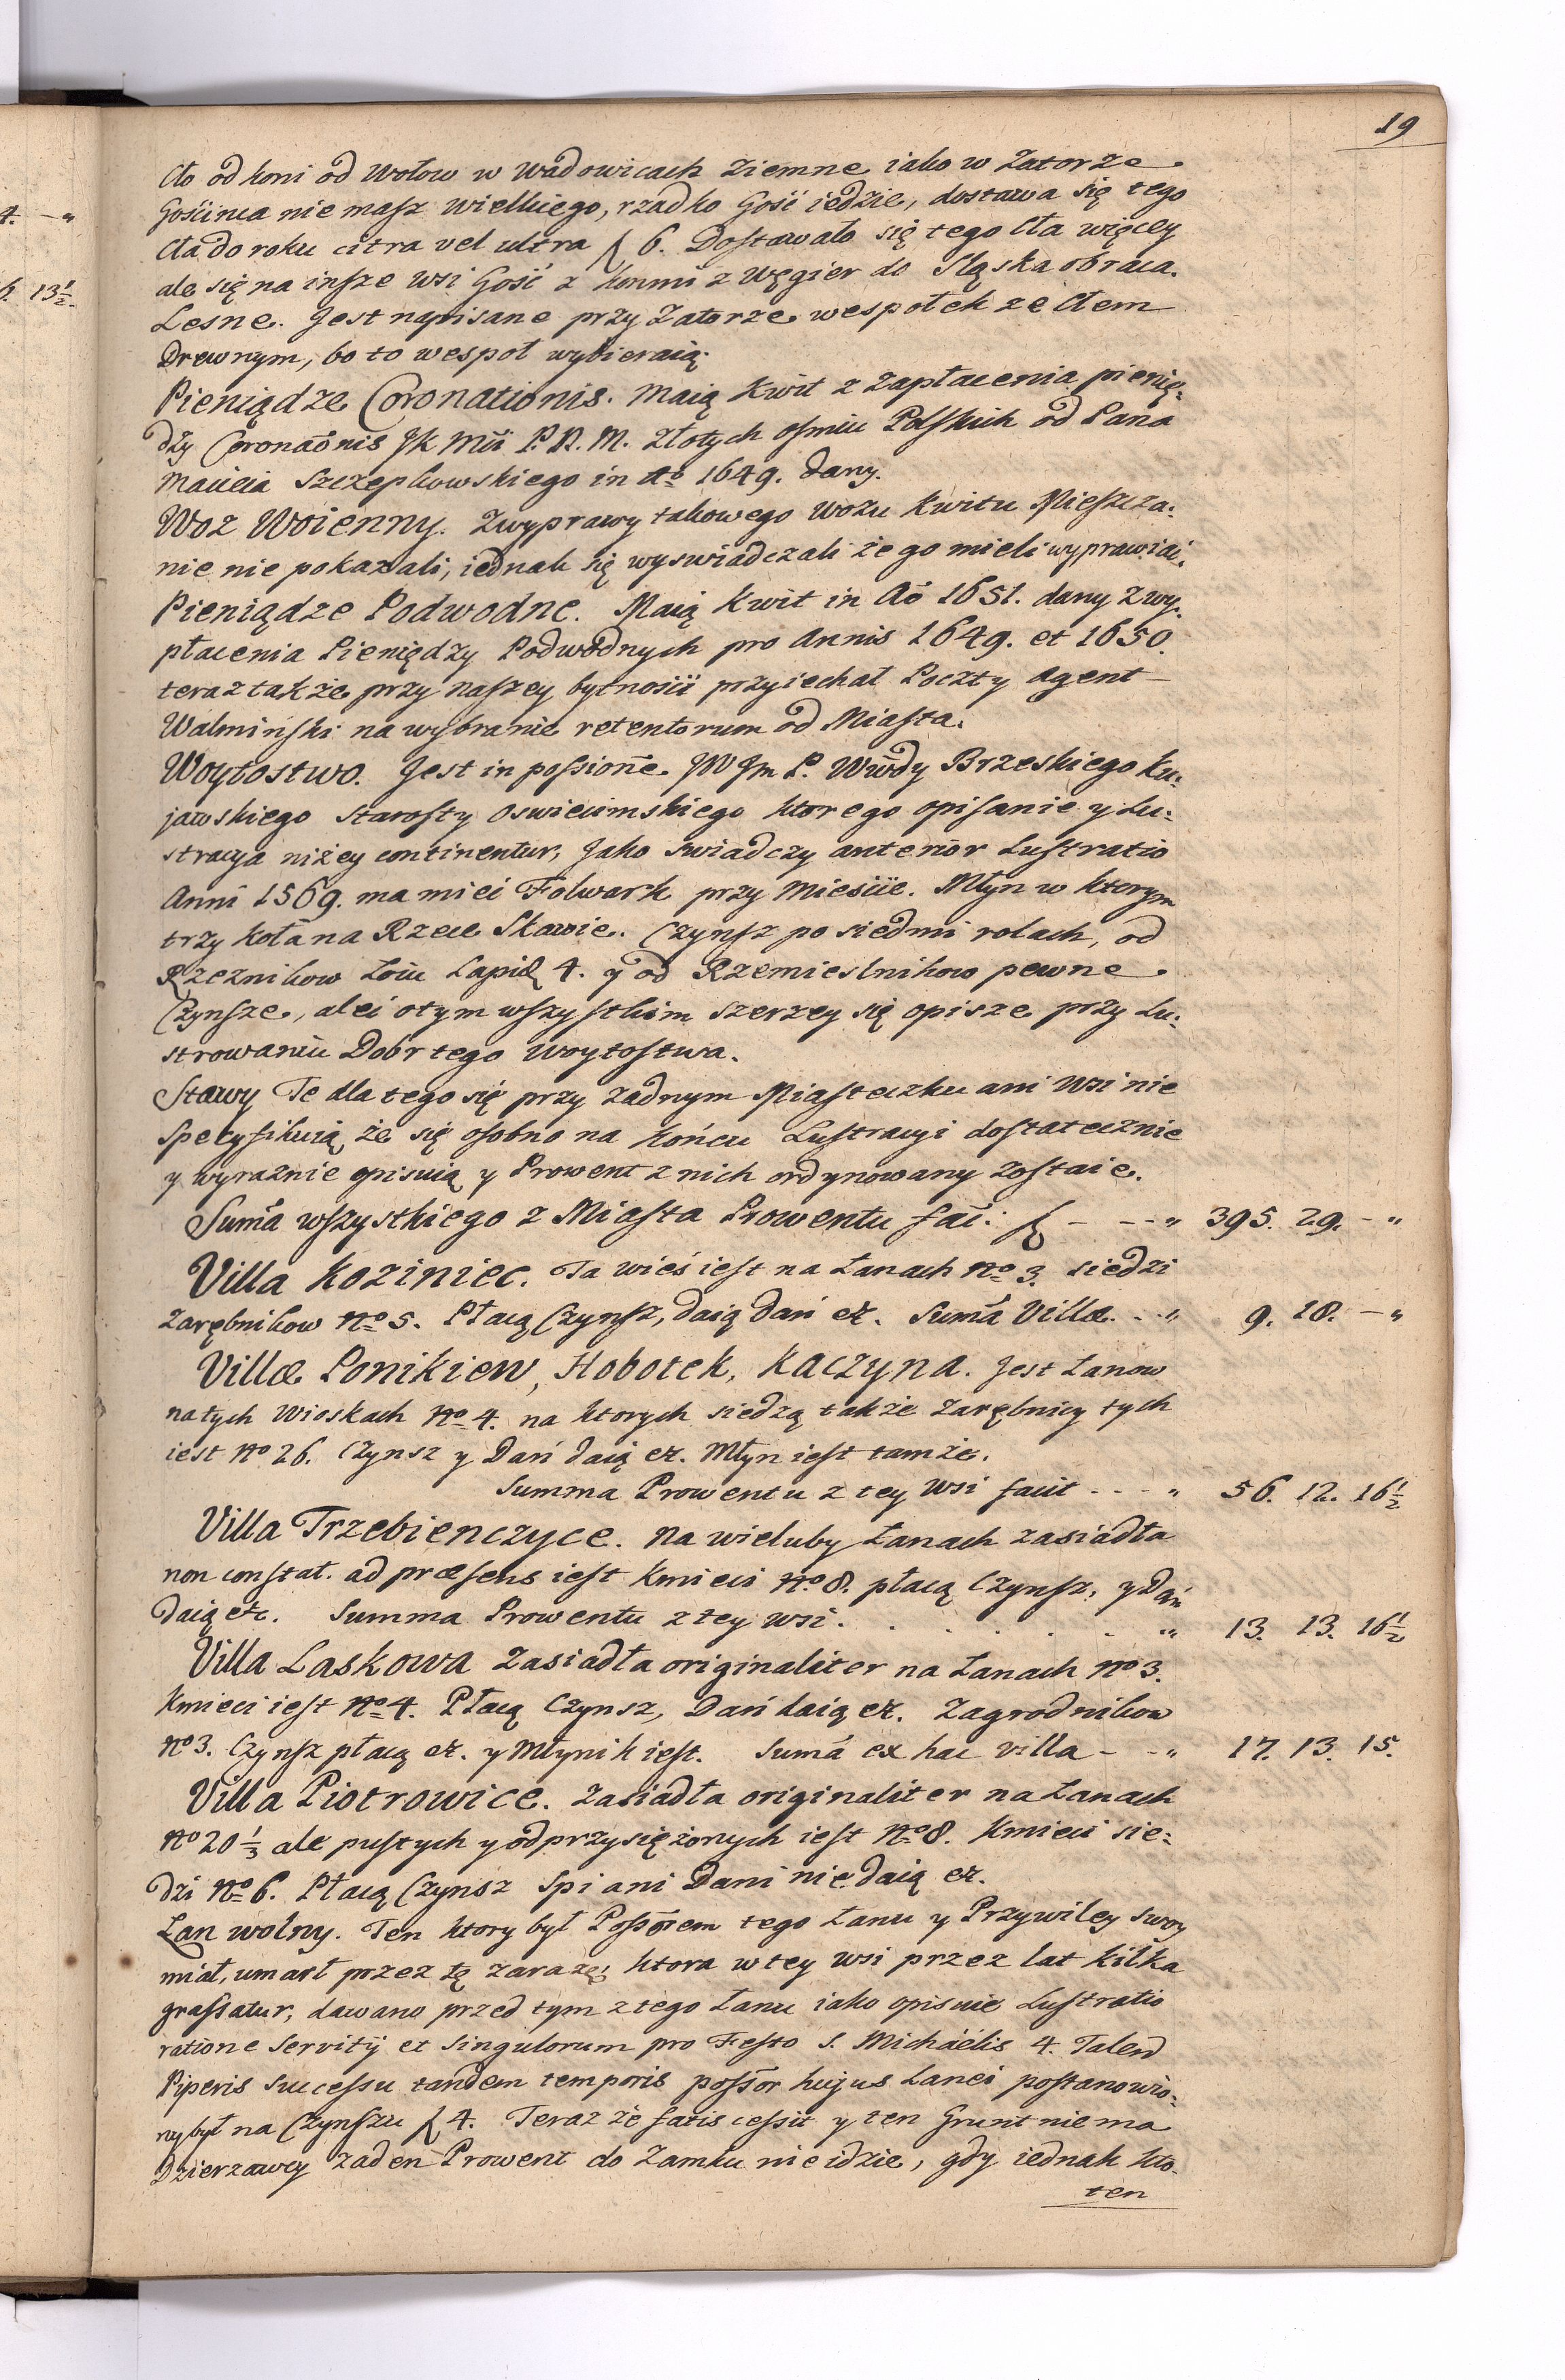 19
Cło od koni od Wołow w Wadowicach Ziemne iako w Zatorze
Gościnca nie masz wielkiego, rzadko Gość iedzie, dostawa się tego
Cła do roku citra vel ultra f 6. Dostawało się tego Cła więcey
ale się na insze wsi Gość z konmi z Węgier do Sląska obraca.
Lesne. Jest napisane przy Zatorze wespołek ze Cłem
Drewnym, bo to wespoł wybieraią.
Pieniądze Coronationis. Maią Kwit z zapłacenia pienię:
dzy Coronaōnis JK Mći P. N. M. Złotych osmiu Polskich od Pana
Macieia Szczepkowskiego in Aō 1649. dany.
Woz Woienny. Zwyprawy takowego wozu Kwitu Mieszcza:
nie nie pokazali, iednak się wyswiadczali że go mieli wyprawiać.
Pieniądze Podwodne. Maią Kwit in Aō 1651. dany z wy:
płacenia Pieniędzy Podwodnych pro Annis 1649. et 1650.
teraz także przy naszey bytności przyiechał Poczty Agent
Walminski na wybranie retentorum od Miasta.
Woytostwo. Jest in possione JW Jm P. Wwdy Brzeskiego Ku:
jawskiego Starosty Oswiecimskiego ktorego opisanie y Lu:
stracya niżey continentur, Jako swiadczy anterior Lustratio
Anni 1569. ma mieć Folwark przy Mieście. Młyn w ktorym
trzy koła na Rzece Skawie. Czynsz po siedmi rolach, od
Rzeznikow Łoiu Lapid 4. y od Rzemieslnikow pewne
Czynsze, aleć o tym wszystkim szerzey się opisze przy Lu:
strowaniu Dobr tego Woytostwa.
Stawy Te dla tego się przy żadnym Miasteczku ani Wsi nie
specyfikuią, że się osobno na końcu Lustracyi dostatecznie
y wyraznie opisuią y Prowent z nich ordynowany zostaie.
Suma wszystkiego z Miasta Prowentu fać: f - - - " 395. 29. - "
Villa Koziniec. Ta wieś iest na Łanach No 3. siedzi
Zarębnikow No 5. Płacą Czynsz, daią Dań etc. Suma Villæ - - " 9. 18. - "
Villæ Ponikiew, Hobotek, Kaczyna. Jest Łanow
na tych Wioskach No 4. na ktorych siedzą także Zarębnicy tych
iest No 26. Czynsz y Dań daią etc. Młyn iest tamże.
Summa Prowentu z tey wsi facit - - - " 56. 12. 16½
Villa Trzebienczyce. Na wieluby Łanach zasiadła
non constat. ad præsens iest Kmieci No 8. płacą Czynsz, y Dań
daią etc. Summa Prowentu z tey wsi . . . . . . " 13. 13. 16½
Villa Laskowa zasiadła originaliter na Łanach No 3.
Kmieci iest No 4. Płacą Czynsz, Dań daią etc. Zagrodnikow
No 3. Czynsz płacą etc. y Młynik iest. Suma ex hac villa - - " 17. 13. 15.
Villa Piotrowice. Zasiadła originaliter na Łanach
No 20⅓ ale pustych y odprzysiężonych iest No 8. Kmieci sie:
dzi No 6. Płacą Czynsz Spi ani Dani nie daią etc.
Łan wolny. Ten ktory był Possorem tego Łanu y Przywiley swoy
miał, umarł przez tę zarazę, ktora w tey wsi przez lat kilka
grassatur, dawano przed tym z tego Łanu iako opisuie Lustratio
ratione Servitÿ et singulorum pro Festo S. Michaëlis 4. Talend
Piperis Successu tandem temporis possor hujus Lanei postanowio:
ny był na Czynszu f 4. Teraz że fatis cessit y ten Grunt nie ma
Dzierzawcy żaden Prowent do Zamku nie idzie, gdy iednak kto
ten
4. - "
6. 13½.